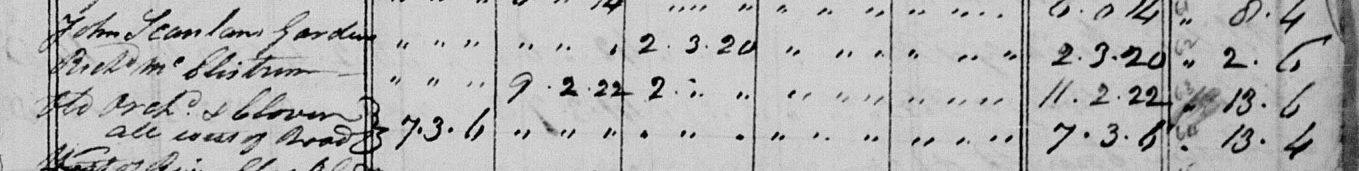 " " " 14 " " " " " " " " " 6. 0 14 " 8. 4
John Scanlans Garden " " " " " " 2. 3. 20 " " " " " " 2. 3. 20 " 2. 6
Richd. Mc Elistrum " " " 9. 2. 22 2. " " " " " " " " 11. 2. 22 " 13. 6
Old Orchd. & Clover
all west of Road } 7. 3. 6 " " " " " " " " " " " " 7. 3. 6 " 13. 4